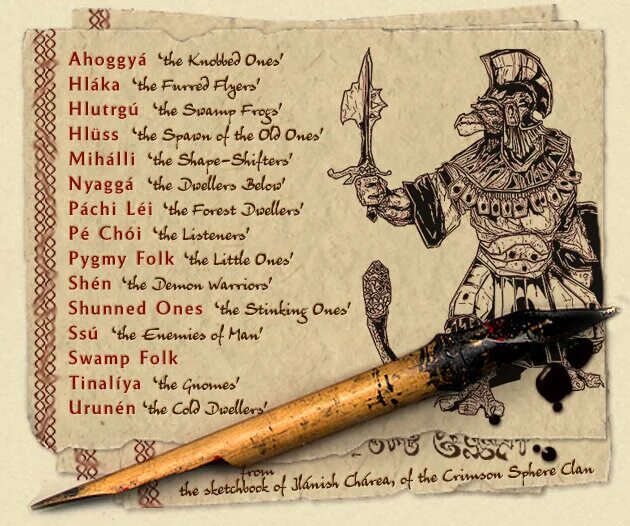 Ahoggyá 'the Knobbed Ones'
Hláka 'the Furred Flyers'
Hlutrgú 'the Swamp Frogs'
Hlüss 'the Spawn of the Old Ones'
Mihálli 'the Shape-Shifters'
Nyaggá 'the Dwellers Below'
Páchi Léi 'the Forest Dwellers'
Pé Chói 'the Listeners'
Pygmy Folk 'the Little Ones'
Shén 'the Demon Warriors'
Shunned Ones 'the Stinking Ones'
Ssú 'the Enemies of Man'
Swamp Folk
Tinalíya 'the Gnomes'
Urunén 'the Cold Dwellers'
from
the sketchbook of Jlánish Chárea, of the Crimson Sphere Clan